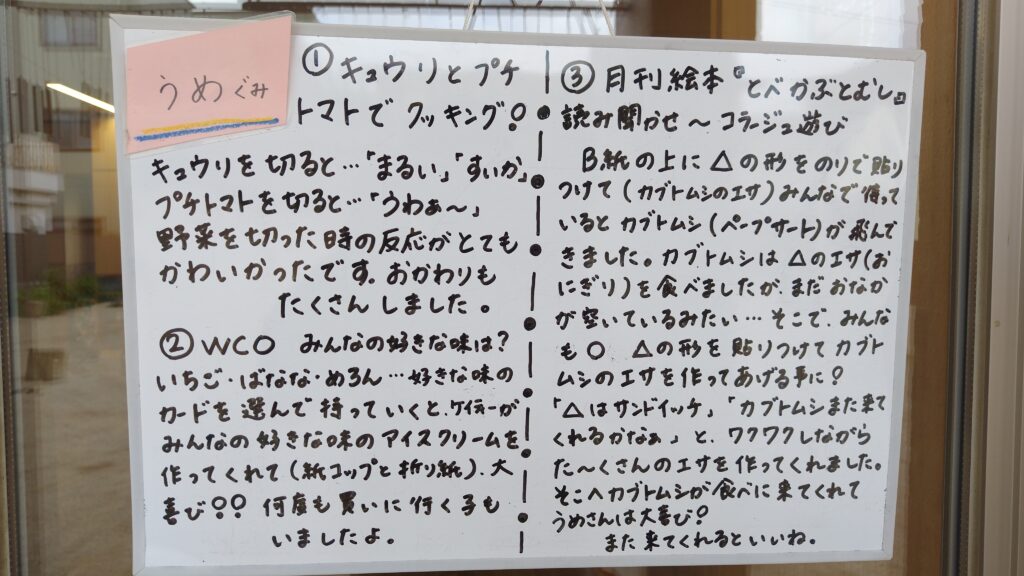 うめぐみ
① キュウリとプチ
トマトで クッキング!
キュウリを切ると…「まるい」「すいか」
プチトマトを切ると…「うわぁ〜」
野菜を切った時の反応がとても
かわいかったです。おかわりも
たくさんしました。
② WCO みんなの好きな味は?
いちご・ばなな・めろん…好きな味の
カードを選んで持っていくと、ケイティーが
みんなの好きな味のアイスクリームを
作ってくれて(紙コップと折り紙)、大
喜び!! 何度も買いに行く子も
いましたよ。
③ 月刊絵本『とべかぶとむし』
読み聞かせ〜コラージュ遊び
B紙の上に △の形をのりで貼り
つけて(カブトムシのエサ)みんなで待って
いるとカブトムシ(ペープサート)が飛んで
きました。カブトムシは△のエサ(お
にぎり)を食べましたが、まだおなか
が空いているみたい…そこで、みんな
も○ △の形を貼りつけてカブト
ムシのエサを作ってあげる事に!
「△はサンドイッチ」「カブトムシまた来て
くれるかなぁ」と、ワクワクしながら
た〜くさんのエサを作ってくれました。
そこへカブトムシが食べに来てくれて
うめさんは大喜び!
また来てくれるといいね。